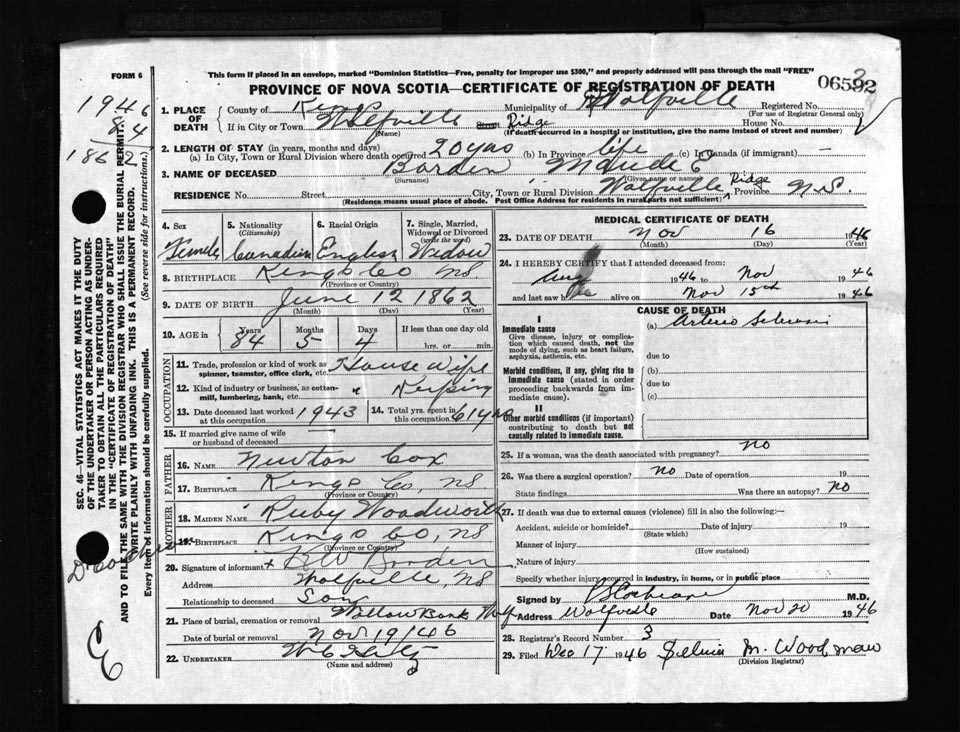 FORM 6
This form if placed in an envelope, marked "Dominion Statistics—Free, penalty for improper use $300," and properly addressed will pass through the mail "FREE"
PROVINCE OF NOVA SCOTIA—CERTIFICATE OF REGISTRATION OF DEATH
06592
3
1946
84
1862
1. PLACE OF DEATH
County of Kings Municipality of Wolfville Registered No.
(For use of Registrar General only)
If in City or Town Wolfville Ridge House No.
(Name) (If death occurred in a hospital or institution, give the name instead of street and number)
2. LENGTH OF STAY (in years, months and days)
(a) In City, Town or Rural Division where death occurred 20 yrs (b) In Province life (c) In Canada (if immigrant) —
3. NAME OF DECEASED Borden Maude E
(Surname) (Given name or names)
RESIDENCE No. Street City, Town or Rural Division Wolfville Ridge Province N.S.
(Residence means usual place of abode. Post Office Address for residents in rural parts not sufficient)
4. Sex Female
5. Nationality (Citizenship) Canadian
6. Racial Origin English
7. Single, Married, Widowed or Divorced (write the word) Widow
8. BIRTHPLACE Kings Co NS.
(Province or Country)
9. DATE OF BIRTH June 12 1862
(Month) (Day) (Year)
10. AGE in Years 84 Months 5 Days 4 If less than one day old hrs. or min.
OCCUPATION
11. Trade, profession or kind of work as spinner, teamster, office clerk, etc. House Wife
12. Kind of industry or business, as cotton-mill, lumbering, bank, etc. " Keeping
13. Date deceased last worked at this occupation 1943
14. Total yrs. spent in this occupation 61 yrs
15. If married give name of wife or husband of deceased
FATHER
16. NAME Newton Cox
17. BIRTHPLACE Kings Co, NS
(Province or Country)
MOTHER
18. MAIDEN NAME Ruby Woodworth
19. BIRTHPLACE Kings Co, NS
(Province or Country)
20. Signature of informant Borden
Address Wolfville, NS
Relationship to deceased Son
21. Place of burial, cremation or removal Willow Bank Wolf
Date of burial or removal Nov 19/46
22. UNDERTAKER
(Name and address)
MEDICAL CERTIFICATE OF DEATH
23. DATE OF DEATH Nov 16 1946
(Month) (Day) (Year)
24. I HEREBY CERTIFY that I attended deceased from:
Aug 1946 to Nov 1946
and last saw h alive on Nov 15th 1946
CAUSE OF DEATH
I
Immediate cause
Give disease, injury or complication which caused death, not the mode of dying, such as heart failure, asphyxia, asthenia, etc.
(a) Arterio
due to
Morbid conditions, if any, giving rise to immediate cause (stated in order proceeding backwards from immediate cause).
(b)
due to
(c)
II
Other morbid conditions (if important) contributing to death but not causally related to immediate cause.
25. If a woman, was the death associated with pregnancy? no
26. Was there a surgical operation? no Date of operation 19
State findings Was there an autopsy? no
27. If death was due to external causes (violence) fill in also the following:—
Accident, suicide or homicide? Date of injury 19
(State which)
Manner of injury
(How sustained)
Nature of injury
Specify whether injury occurred in industry, in home, or in public place
Signed by Cochrane M.D.
Address Wolfville Date Nov 20 1946
28. Registrar's Record Number 3
29. Filed Dec 17 1946 M. Woodman
(Division Registrar)
SEC. 46—VITAL STATISTICS ACT MAKES IT THE DUTY
OF THE UNDERTAKER OR PERSON ACTING AS UNDERTAKER
TO OBTAIN ALL THE PARTICULARS REQUIRED
IN THE "CERTIFICATE OF REGISTRATION OF DEATH"
AND TO FILE THE SAME WITH THE DIVISION REGISTRAR WHO SHALL ISSUE THE BURIAL PERMIT.
WRITE PLAINLY WITH UNFADING INK. THIS IS A PERMANENT RECORD.
Every item of information should be carefully supplied. (See reverse side for instructions.)